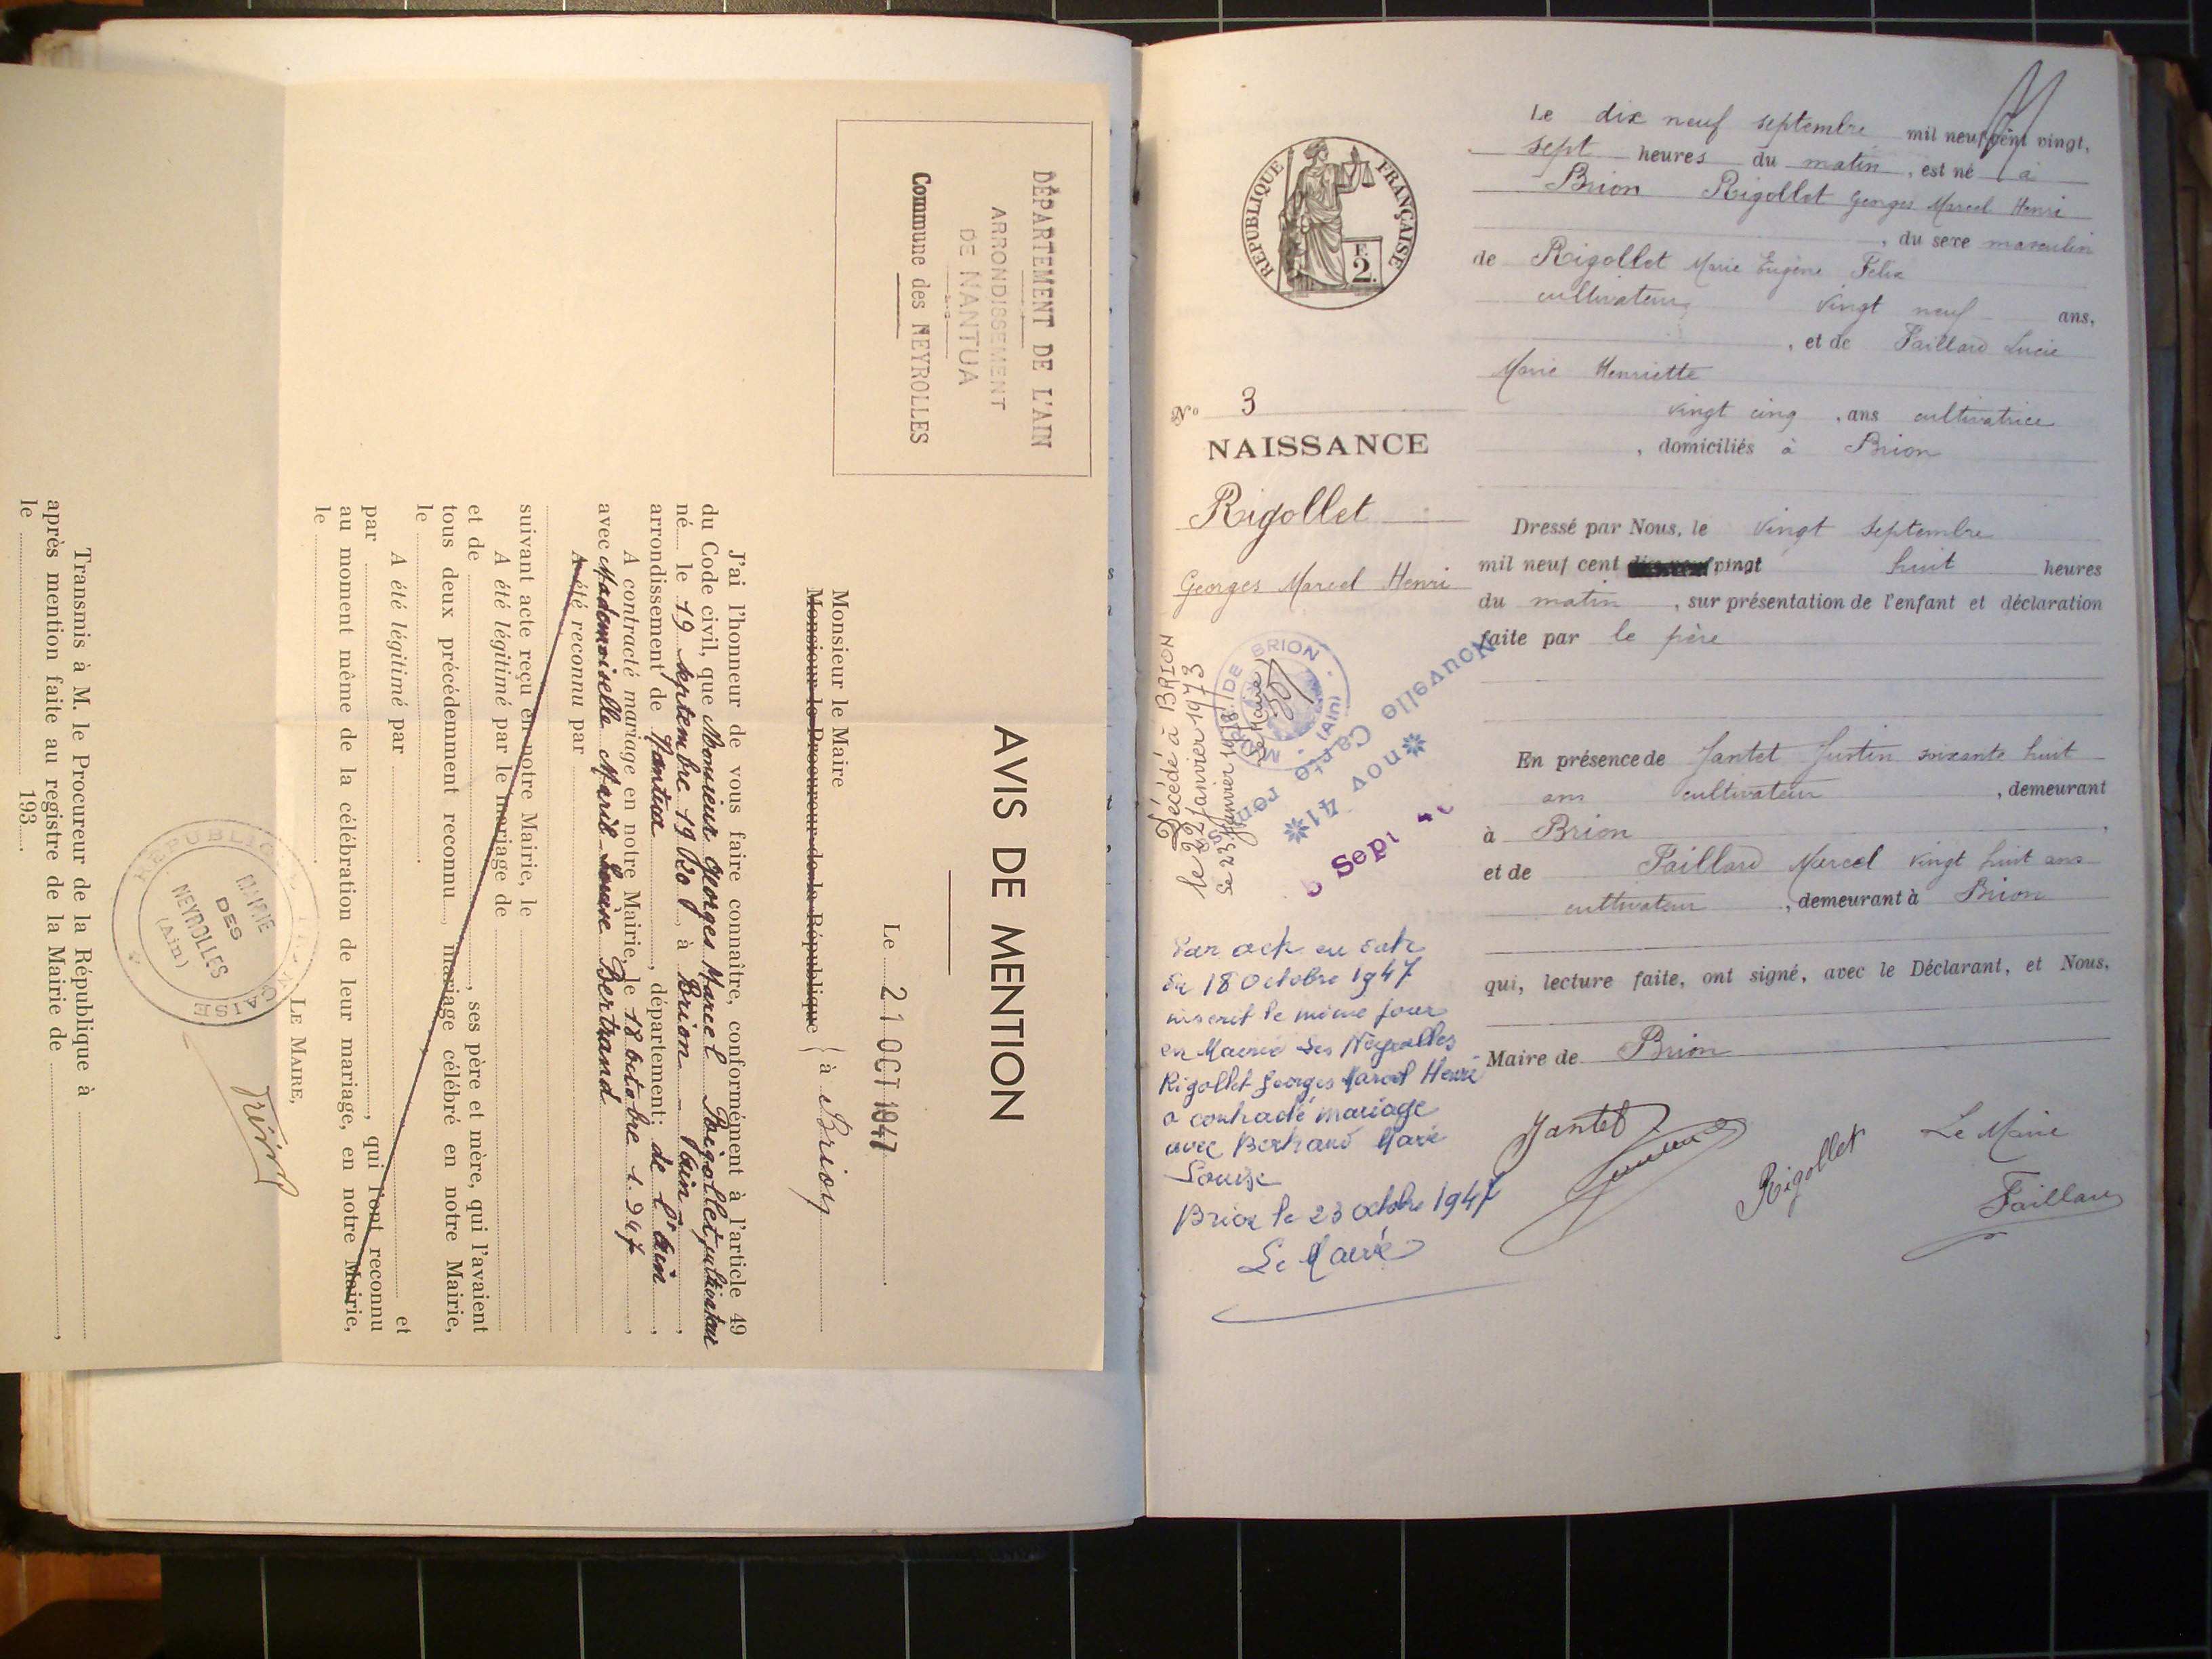 DÉPARTEMENT DE L'AIN
ARRONDISSEMENT
DE NANTUA
Commune des NEYROLLES
AVIS DE MENTION
Le 21 OCT 1947
Monsieur le Maire
Monsieur le Procureur de la République } à Brion
J'ai l'honneur de vous faire connaître, conformément à l'article 49
du Code civil, que Monsieur Georges Marcel Rigollet, cultivateur
né le 19 septembre 1920, à Brion - Ain -,
arrondissement de Nantua, département de l'Ain,
A contracté mariage en notre Mairie, le 18 octobre 1.947,
avec Mademoiselle Marie Louise Bertrand
A été reconnu par
suivant acte reçu en notre Mairie, le
A été légitimé par le mariage de
et de , ses père et mère, qui l'avaient
tous deux précédemment reconnu , mariage célébré en notre Mairie,
le
A été légitimé par et
par , qui l'ont reconnu
au moment même de la célébration de leur mariage, en notre Mairie,
le
LE MAIRE,
RÉPUBLIQUE FRANÇAISE
MAIRIE
DES
NEYROLLES
(Ain)
Transmis à M. le Procureur de la République à
après mention faite au registre de la Mairie de ,
le 193
RÉPUBLIQUE FRANÇAISE
F
2
No 3
NAISSANCE
Rigollet
Georges Marcel Henri
Décédé à BRION
le 22 janvier 1973
Le 23 Janvier 1973
Le Maire
MAIRIE DE BRION
(Ain)
Nouvelle Carte
nov 41
Sept
Par acte en date
du 18 octobre 1947
inscrit le même jour
en Mairie des Neyrolles
Rigollet Georges Marcel Henri
a contracté mariage
avec Bertrand Marie
Louise
Brion le 23 octobre 1947
Le Maire
Le dix neuf septembre mil neuf cent vingt,
sept heures du matin, est né à
Brion Rigollet Georges Marcel Henri
, du sexe masculin
de Rigollet Marie Eugène Felix
cultivateur vingt neuf ans,
, et de Paillard Lucie
Marie Henriette
vingt cinq , ans cultivatrice
, domiciliés à Brion
Dressé par Nous, le vingt Septembre
mil neuf cent vingt huit heures
du matin , sur présentation de l'enfant et déclaration
faite par le père
En présence de Jantet Justin soixante huit
ans cultivateur , demeurant
à Brion ,
et de Paillard Marcel vingt huit ans
cultivateur , demeurant à Brion
qui, lecture faite, ont signé, avec le Déclarant, et Nous,
Maire de Brion
Jantet
Rigollet
Le Maire
Paillard